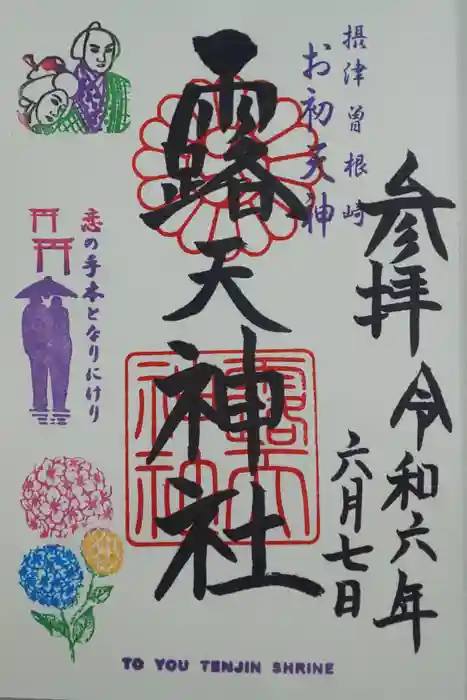 参拝 令和六年
六月七日
摂津 曽根崎
お初天神
露天神社
恋の手本となりにけり
TO YOU TENJIN SHRINE